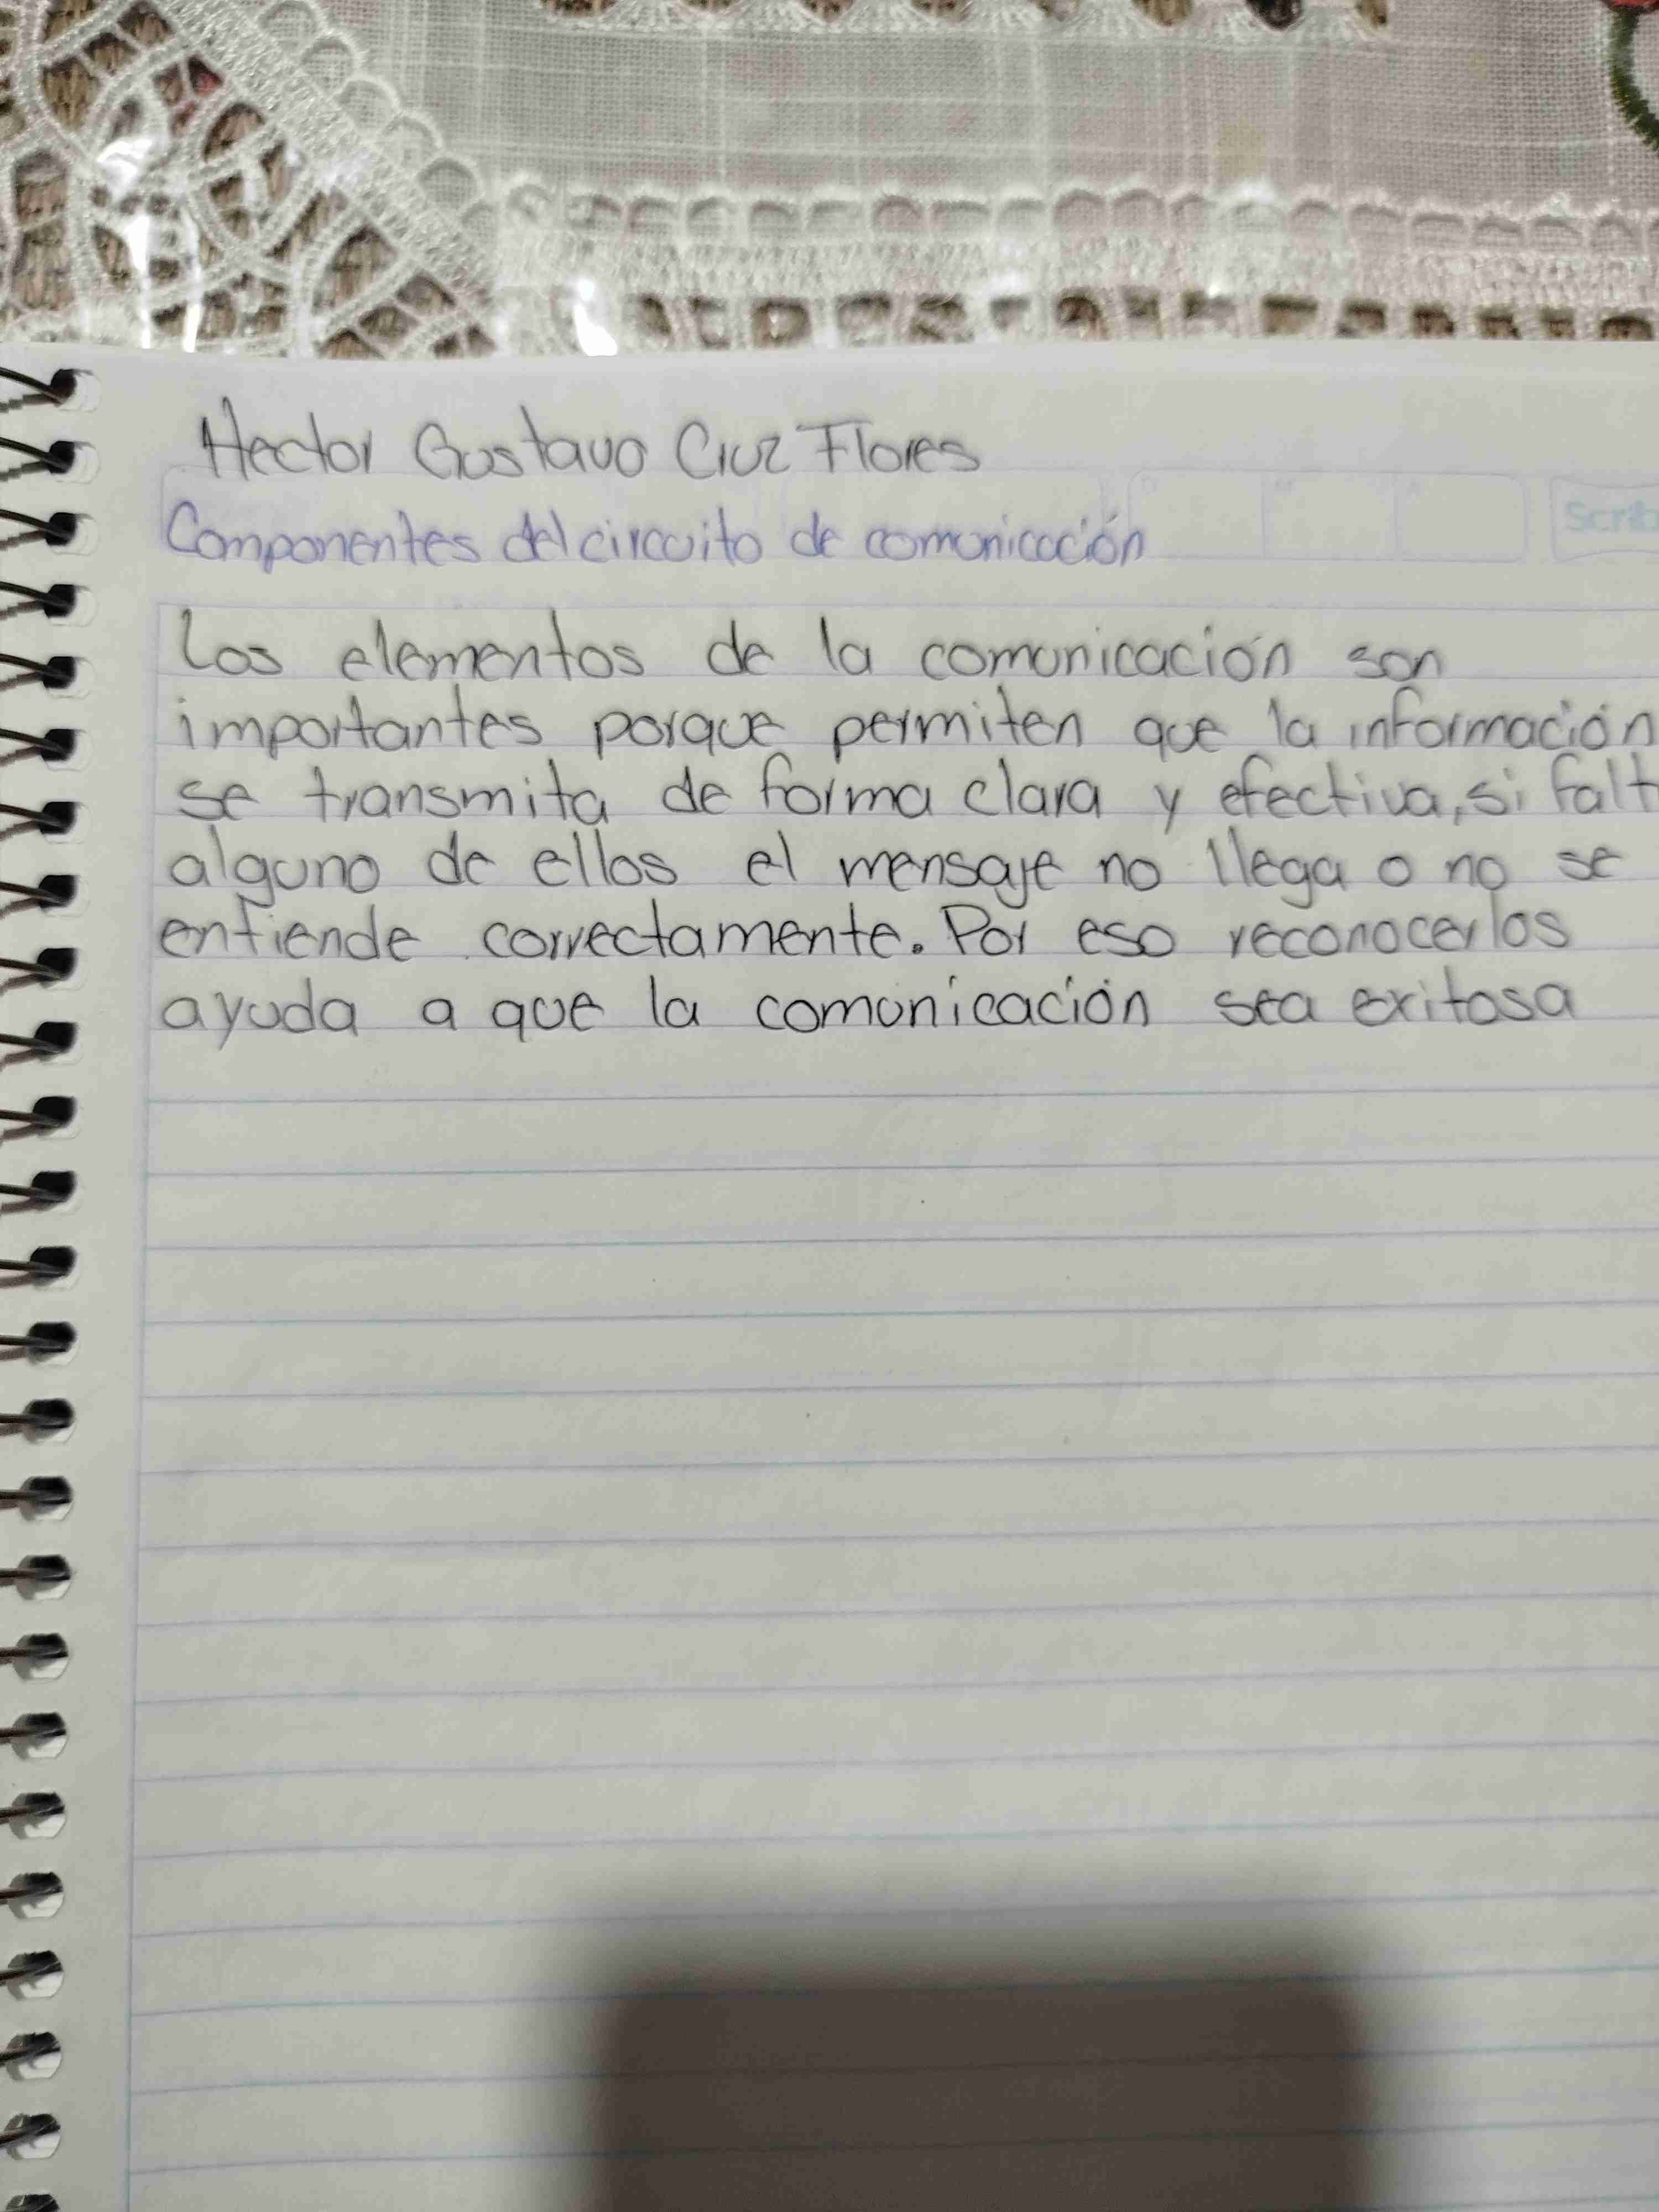 Hector Gustavo Cruz Flores
Componentes del circuito de comunicación
Scrib
Los elementos de la comunicación son
importantes porque permiten que la información
se transmita de forma clara y efectiva, si falt
alguno de ellos el mensaje no llega o no se
entiende correctamente. Por eso reconocerlos
ayuda a que la comunicación sea exitosa